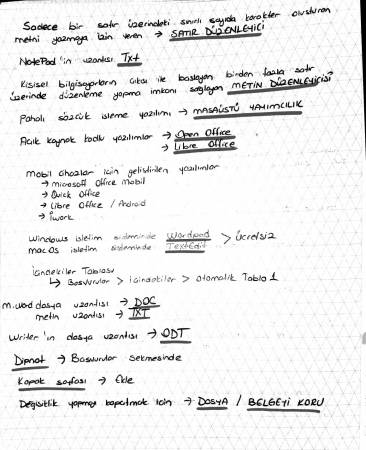 Sadece bir satır üzerindeki sınırlı sayıda karakter oluşturan
metni yazmaya izin veren → SATIR DÜZENLEYİCİ
NotePad'in uzantısı Txt
Kişisel bilgisayarların çıkışı ile başlayan birden fazla satır
üzerinde düzenleme yapma imkanı sağlayan METİN DÜZENLEYİCİSİ
Pahalı sözcük işleme yazılımı → MASAÜSTÜ YAYIMCILIK
Açık kaynak kodlu yazılımlar → Open Office
→ Libre Office
Mobil cihazlar için geliştirilen yazılımlar
→ microsoft Office Mobil
→ Quick Office
→ Libre Office / Android
→ İwork
Windows işletim sisteminde Wordpad > Ücretsiz
macOs işletim sisteminde TextEdit
İçindekiler Tablosu
↳ Başvurular > içindekiler > otomatik Tablo 1
m.word dosya uzantısı → DOC
metin uzantısı → TXT
Writer'in dosya uzantısı → ODT
Dipnot → Başvurular Sekmesinde
Kapak sayfası → Ekle
Değişiklik yapmayı kapatmak için → DOSYA / BELGEYİ KORU